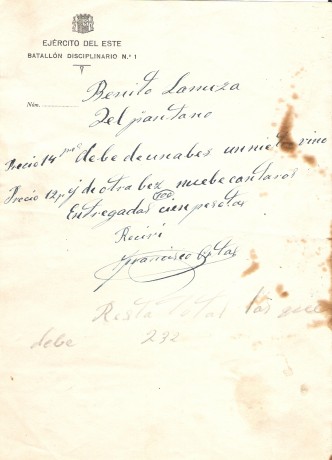 EJÉRCITO DEL ESTE
BATALLÓN DISCIPLINARIO N.º 1
Núm.
Benito Lanuza
Del pantano
Precio 14 debe de una bes un nieto vino
Precio 12 y de otra bez nuebe cantaros
Entregadas 100 cien pesetas
Recivi
Francisco
Resta total las que
debe 232